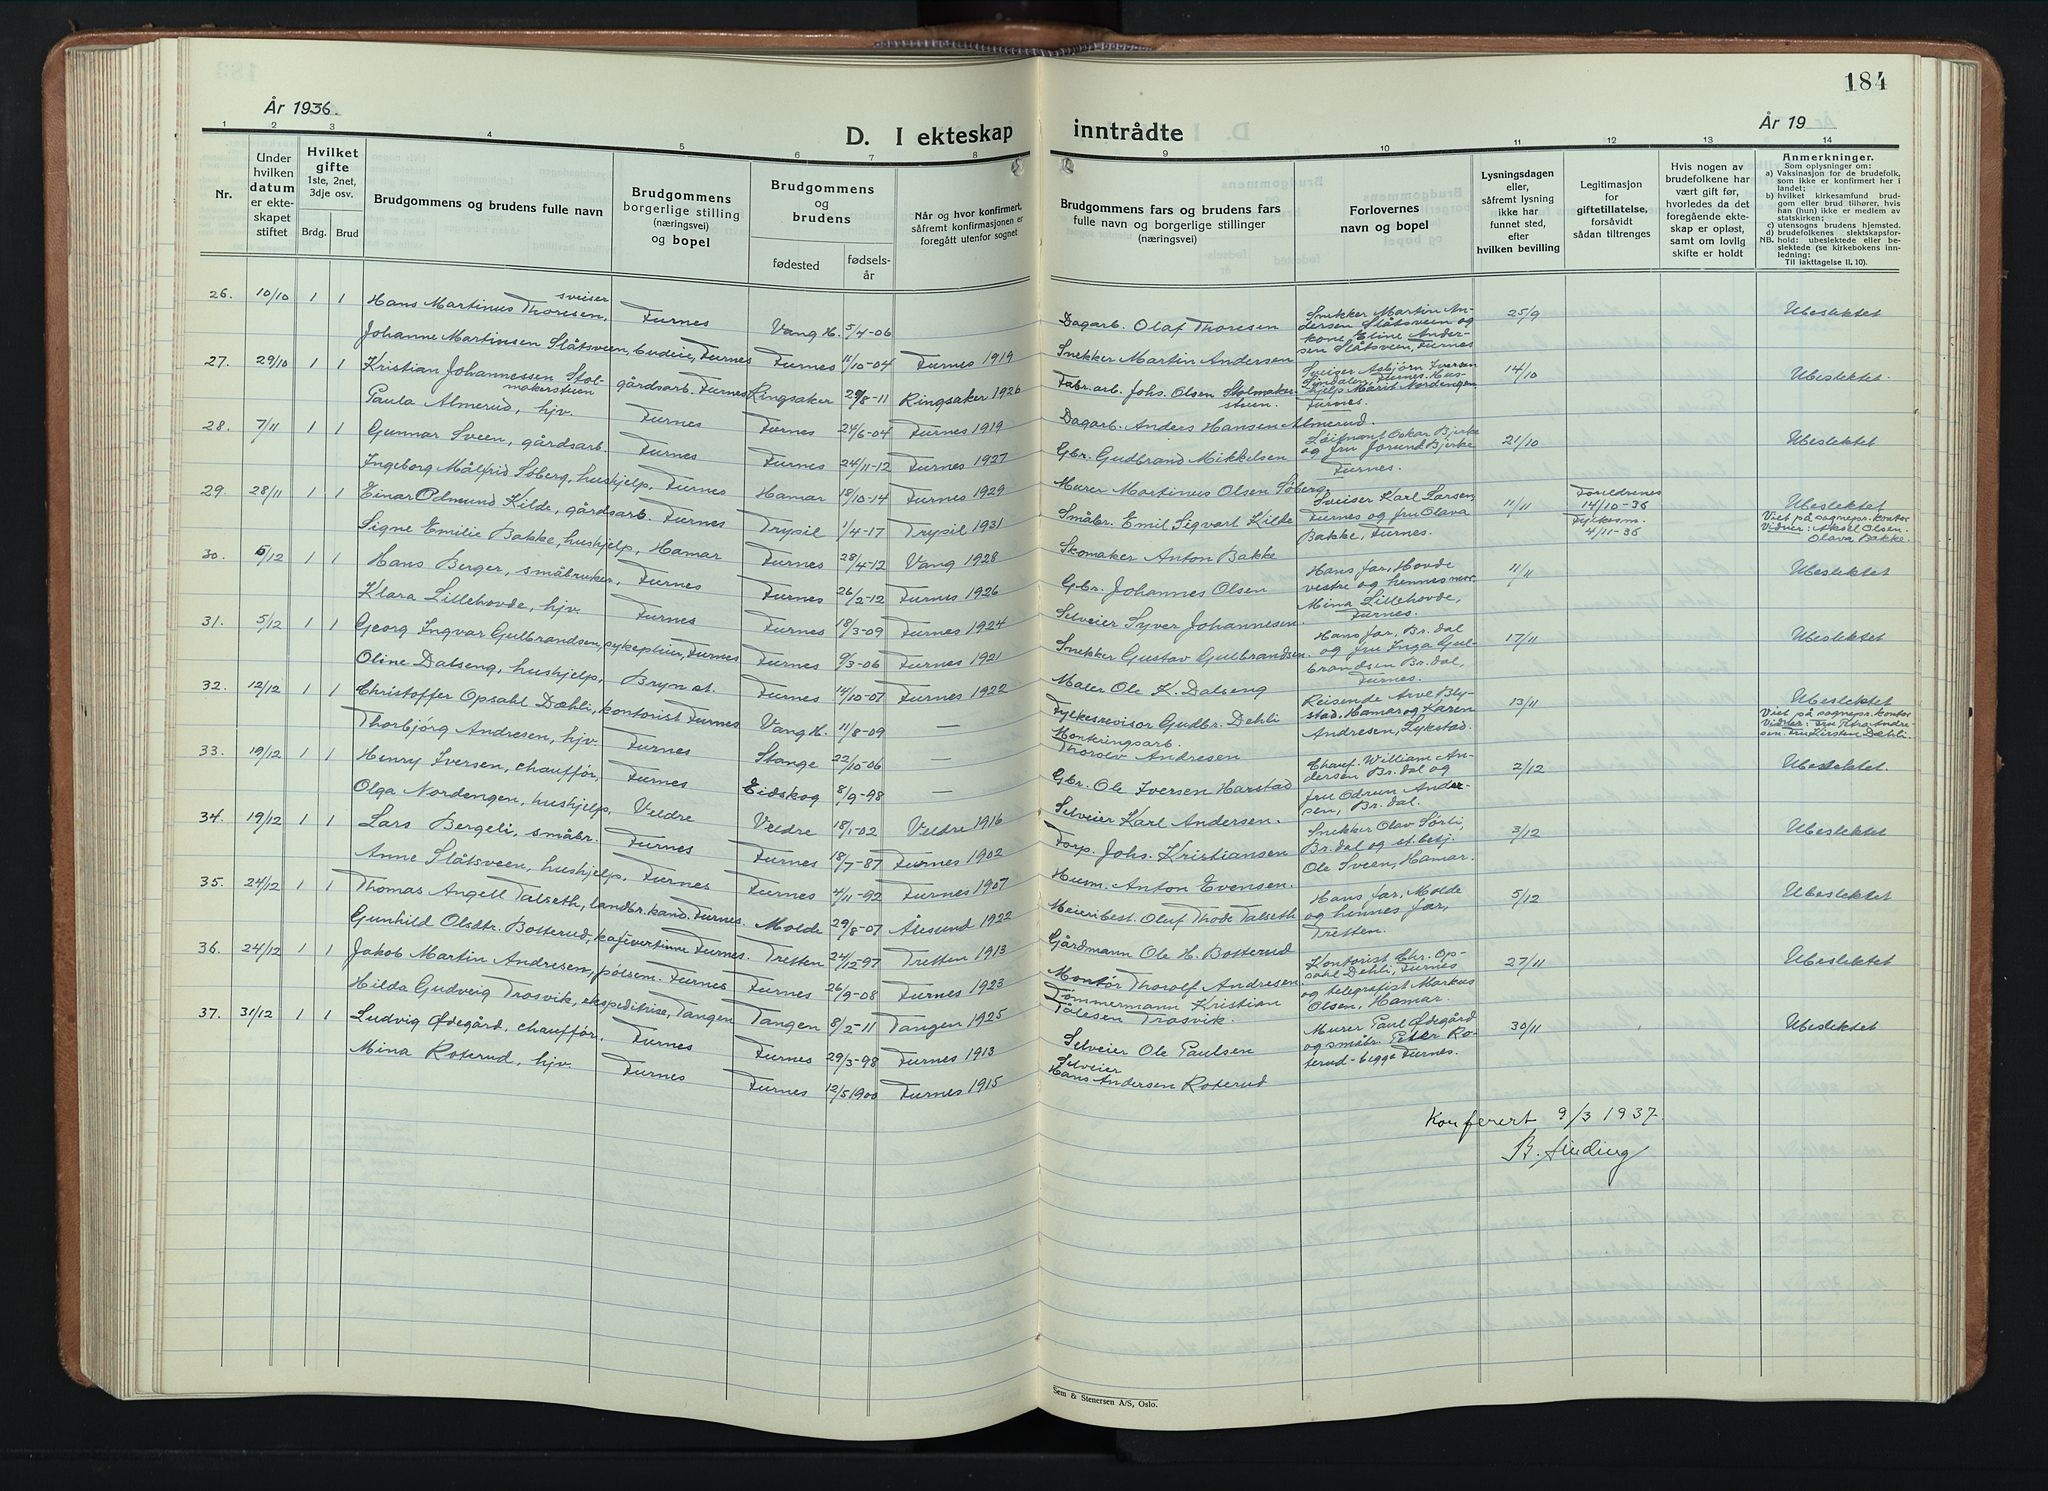 184
År 1936.
År 19
D. I ekteskap inntrådte
1 2 3 4 5 6 7 8 9 10 11 12 13 14
Nr.
Under hvilken datum er ekteskapet stiftet
Hvilket gifte 1ste, 2net, 3dje osv.
Brdg. Brud
Brudgommens og brudens fulle navn
Brudgommens borgerlige stilling (næringsvei) og bopel
Brudgommens og brudens
fødested
fødselsår
Når og hvor konfirmert, såfremt konfirmasjonen er foregått utenfor sognet
Brudgommens fars og brudens fars fulle navn og borgerlige stillinger (næringsvei)
Forlovernes navn og bopel
Lysningsdagen eller, såfremt lysning ikke har funnet sted, efter hvilken bevilling
Legitimasjon for giftetillatelse, forsåvidt sådan tiltrenges
Hvis nogen av brudefolkene har vært gift før, hvorledes da det foregående ekteskap er opløst, samt om lovlig skifte er holdt
Anmerkninger.
Som oplysninger om:
a) Vaksinasjon for de brudefolk, som ikke er konfirmert her i landet;
b) hvilket kirkesamfund brudgom eller brud tilhører, hvis han (hun) ikke er medlem av statskirken;
c) utensogns brudens hjemsted.
d) brudefolkenes slektskapsforhold: ubeslektede eller beslektede (se kirkebokens innledning:
NB. Til iakttagelse II, 10).
26. 10/10 1 1 Hans Martinus Thoresen, sveiser Furnes Vang H. 5/4-06 Dagarb. Olaf Thoresen Snekker Martin Andersen Slåtsveen og kone Eline Andersen Slåtsveen, Furnes 25/9 Ubeslektet
Johanne Martinsen Slåtsveen, budeie, Furnes Furnes 11/10-04 Furnes 1919 Snekker Martin Andersen
27. 29/10 1 1 Kristian Johannessen Stolmakerstuen gårdsarb. Furnes Ringsaker 29/8-11 Ringsaker 1926 Fabr.arb. Johs. Olsen Stolmakerstuen. Sveiser Asbjørn Iversen Lindalen, Furnes. Hushjelp Marit Nordengen Furnes. 14/10 Ubeslektet.
Paula Almerud, hjv. Furnes Furnes 24/6-04 Furnes 1919 Dagarb. Anders Hansen Almerud.
28. 7/11 1 1 Gunnar Sveen, gårdsarb. Furnes Furnes 24/11-12 Furnes 1927 Gbr. Gudbrand Mikkelsen Løitnant Oskar Bjerke og fru Jorund Bjerke Furnes. 21/10 Ubeslektet
Ingeborg Målfrid Søberg, hushjelp, Furnes Hamar 18/10-14 Furnes 1929 Murer Martinus Olsen Søberg.
29. 28/11 1 1 Einar Odmund Kilde, gårdsarb. Furnes Trysil 1/4-17 Trysil 1931 Småbr. Emil Sigvart Kilde Sveiser Karl Larsen, Furnes og fru Olava Bakke, Furnes. 11/11 Foreldrenes 14/10-36 Fylkesm. 4/11-36 Ubeslektet Viet på sognepr. kontor Vidner: Aksel Olsen. Olava Bakke.
Signe Emilie Bakke, hushjelp, Hamar Furnes 28/4-12 Vang 1928 Skomaker Anton Bakke
30. 5/12 1 1 Hans Berger, småbruker, Furnes Furnes 26/2-12 Furnes 1926 Gbr. Johannes Olsen Hans far, Hovde vestre og hennes mor Mina Lillehovde, Furnes. 11/11 Ubeslektet
Klara Lillehovde, hjv. Furnes Furnes 18/3-09 Furnes 1924 Selveier Syver Johannesen.
31. 5/12 1 1 Georg Ingvar Gulbrandsen, sykepleier, Furnes Furnes 9/3-06 Furnes 1921 Snekker Gustav Gulbrandsen. Hans far, Br.dal og fru Inga Gulbrandsen Br.dal, Furnes. 17/11 Ubeslektet
Oline Dalseng, hushjelp, Bryn st. Furnes 14/10-07 Furnes 1922 Maler Ole K. Dalseng
32. 12/12 1 1 Christoffer Opsahl Dæhli, kontorist Furnes Vang H. 11/8-09 — Fylkesrevisor Gudbr. Dehli Reisende Arve Blystad, Hamar og Karen Andresen, Lykstad. 13/11 Ubeslektet Viet på sognepr. kontor Vidner: Fru Petra Andresen. Fru Kirsten Dæhli.
Thorbjørg Andresen, hjv. Furnes Stange 22/10-06 — Montringsarb. Thorolv Andresen
33. 19/12 1 1 Henry Iversen, chauffør, Furnes Eidskog 8/9-98 — Gbr. Ole Iversen Harstad Chauf. William Andersen Br.dal og fru Odrun Andersen, Br.dal. 2/12 Ubeslektet.
Olga Nordengen, hushjelp, Veldre Veldre 18/1-02 Veldre 1916 Selveier Karl Andersen.
34. 19/12 1 1 Lars Bergeli, småbr. Furnes Furnes 18/7-87 Furnes 1902 Forp. Johs. Kristiansen Snekker Olav Sørli, Br.dal og st.betj. Ole Sveen, Hamar. 3/12 Ubeslektet
Anne Slåtsveen, hushjelp, Furnes Furnes 4/11-92 Furnes 1907 Husm. Anton Evensen.
35. 24/12 1 1 Thomas Angell Talseth, landbr. kand. Furnes. Molde 29/8-07 Ålesund 1922 Meieribest. Oluf Thode Talseth Hans far, Molde og hennes far, Tretten. 5/12 Ubeslektet
Gunhild Olsdtr. Botterud, kafévertinne Furnes. Tretten 24/12-97 Tretten 1913 Gårdmann Ole H. Botterud
36. 24/12 1 1 Jakob Martin Andresen, pølsem. Furnes Furnes 26/9-08 Furnes 1923 Montør Thorolf Andresen. Kontorist Chr. Opsahl Dehli, Furnes og telegrafist Markus Olsen, Hamar. 27/11 Ubeslektet
Hilda Gudveig Trosvik, ekspeditrise, Tangen Tangen 8/2-11 Tangen 1925 Tømmermann Kristian Tålesen Trosvik.
37. 31/12 1 1 Ludvig Ødegård, chauffør, Furnes Furnes 29/3-98 Furnes 1913 Selveier Ole Paulsen Murer Paul Ødegård og småbr. Peter Roterud - begge Furnes. 30/11 Ubeslektet
Mina Roterud, hjv. Furnes Furnes 12/5 1900 Furnes 1915 Selveier Hans Andersen Roterud
Konferert 9/3 1937.
B. Sinding
Sem & Stenersen A/S, Oslo.